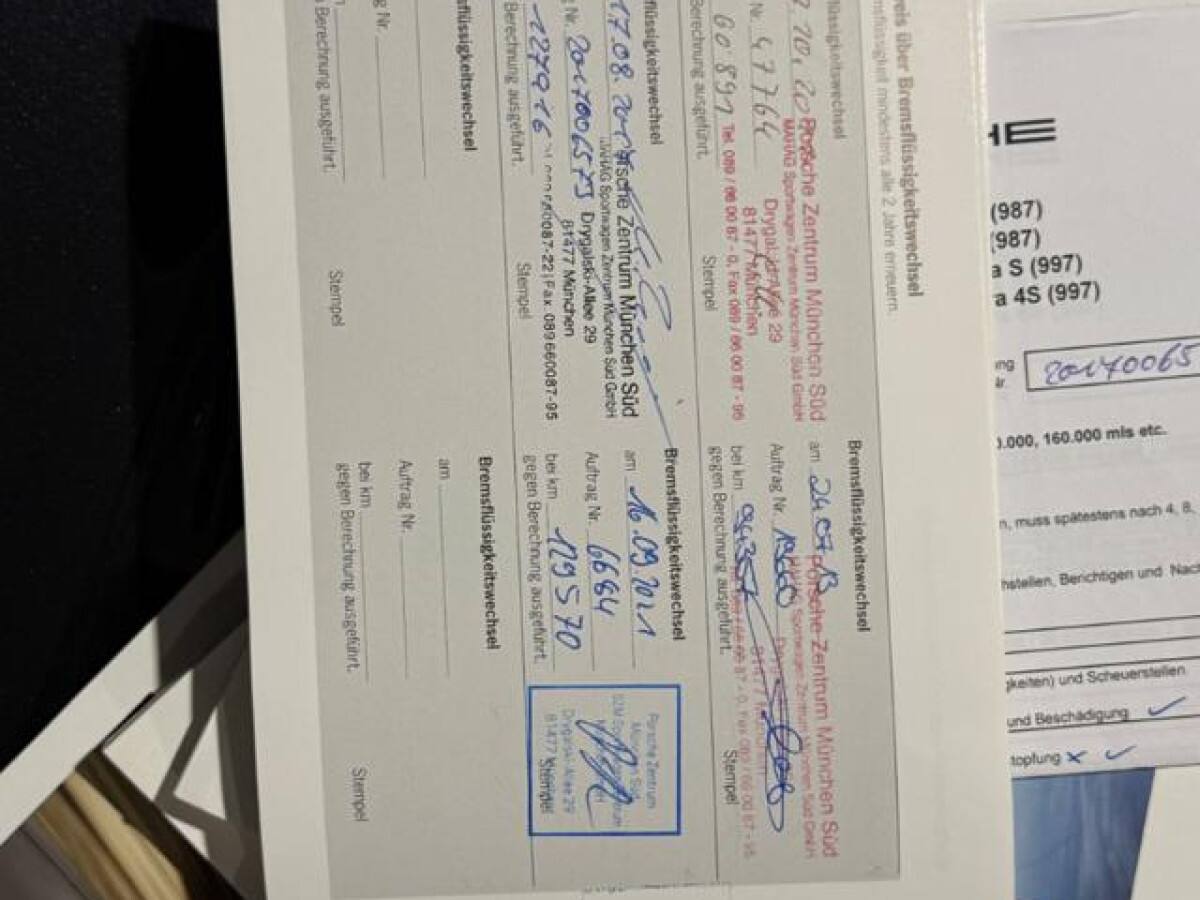 eis über Bremsflüssigkeitswechsel
msflüssigkeit mindestens alle 2 Jahre erneuern.
lüssigkeitswechsel
7.10.20
Nr. 47764
60.891
Berechnung ausgeführt.
Porsche Zentrum München Süd
MAHAG Sportwagen Zentrum München Süd GmbH
Drygalski-Allee 29
81477 München
Tel. 089 / 66 00 87 - 0, Fax 089 / 66 00 87 - 95
Stempel
Bremsflüssigkeitswechsel
am 24.07.13
Auftrag Nr.
bei km
gegen Berechnung ausgeführt.
Porsche Zentrum München Süd
Sportwagen Zentrum München Süd GmbH
81477 München
87 - 0, Fax 089 / 66 00 87 - 95
Stempel
flüssigkeitswechsel
17.08.
g Nr. 2017006573
127916
Berechnung ausgeführt.
rsche Zentrum München Süd
MAHAG Sportwagen Zentrum München Süd GmbH
Drygalski-Allee 29
81477 München
0087-22 | Fax 089 660087-95
Stempel
Bremsflüssigkeitswechsel
am 16.09.2021
Auftrag Nr. 6664
bei km 129570
gegen Berechnung ausgeführt.
Porsche Zentrum
München Süd
Drygalski-Allee 29
81477 München
Stempel
msflüssigkeitswechsel
g Nr.
Berechnung ausgeführt.
Stempel
Bremsflüssigkeitswechsel
am
Auftrag Nr.
bei km
gegen Berechnung ausgeführt.
Stempel
HE
(987)
(987)
a S (997)
a 4S (997)
ng
r. 20170065
0.000, 160.000 mls etc.
n, muss spätestens nach 4, 8,
hstellen, Berichtigen und Nach
gkeiten) und Scheuerstellen
und Beschädigung
topfung